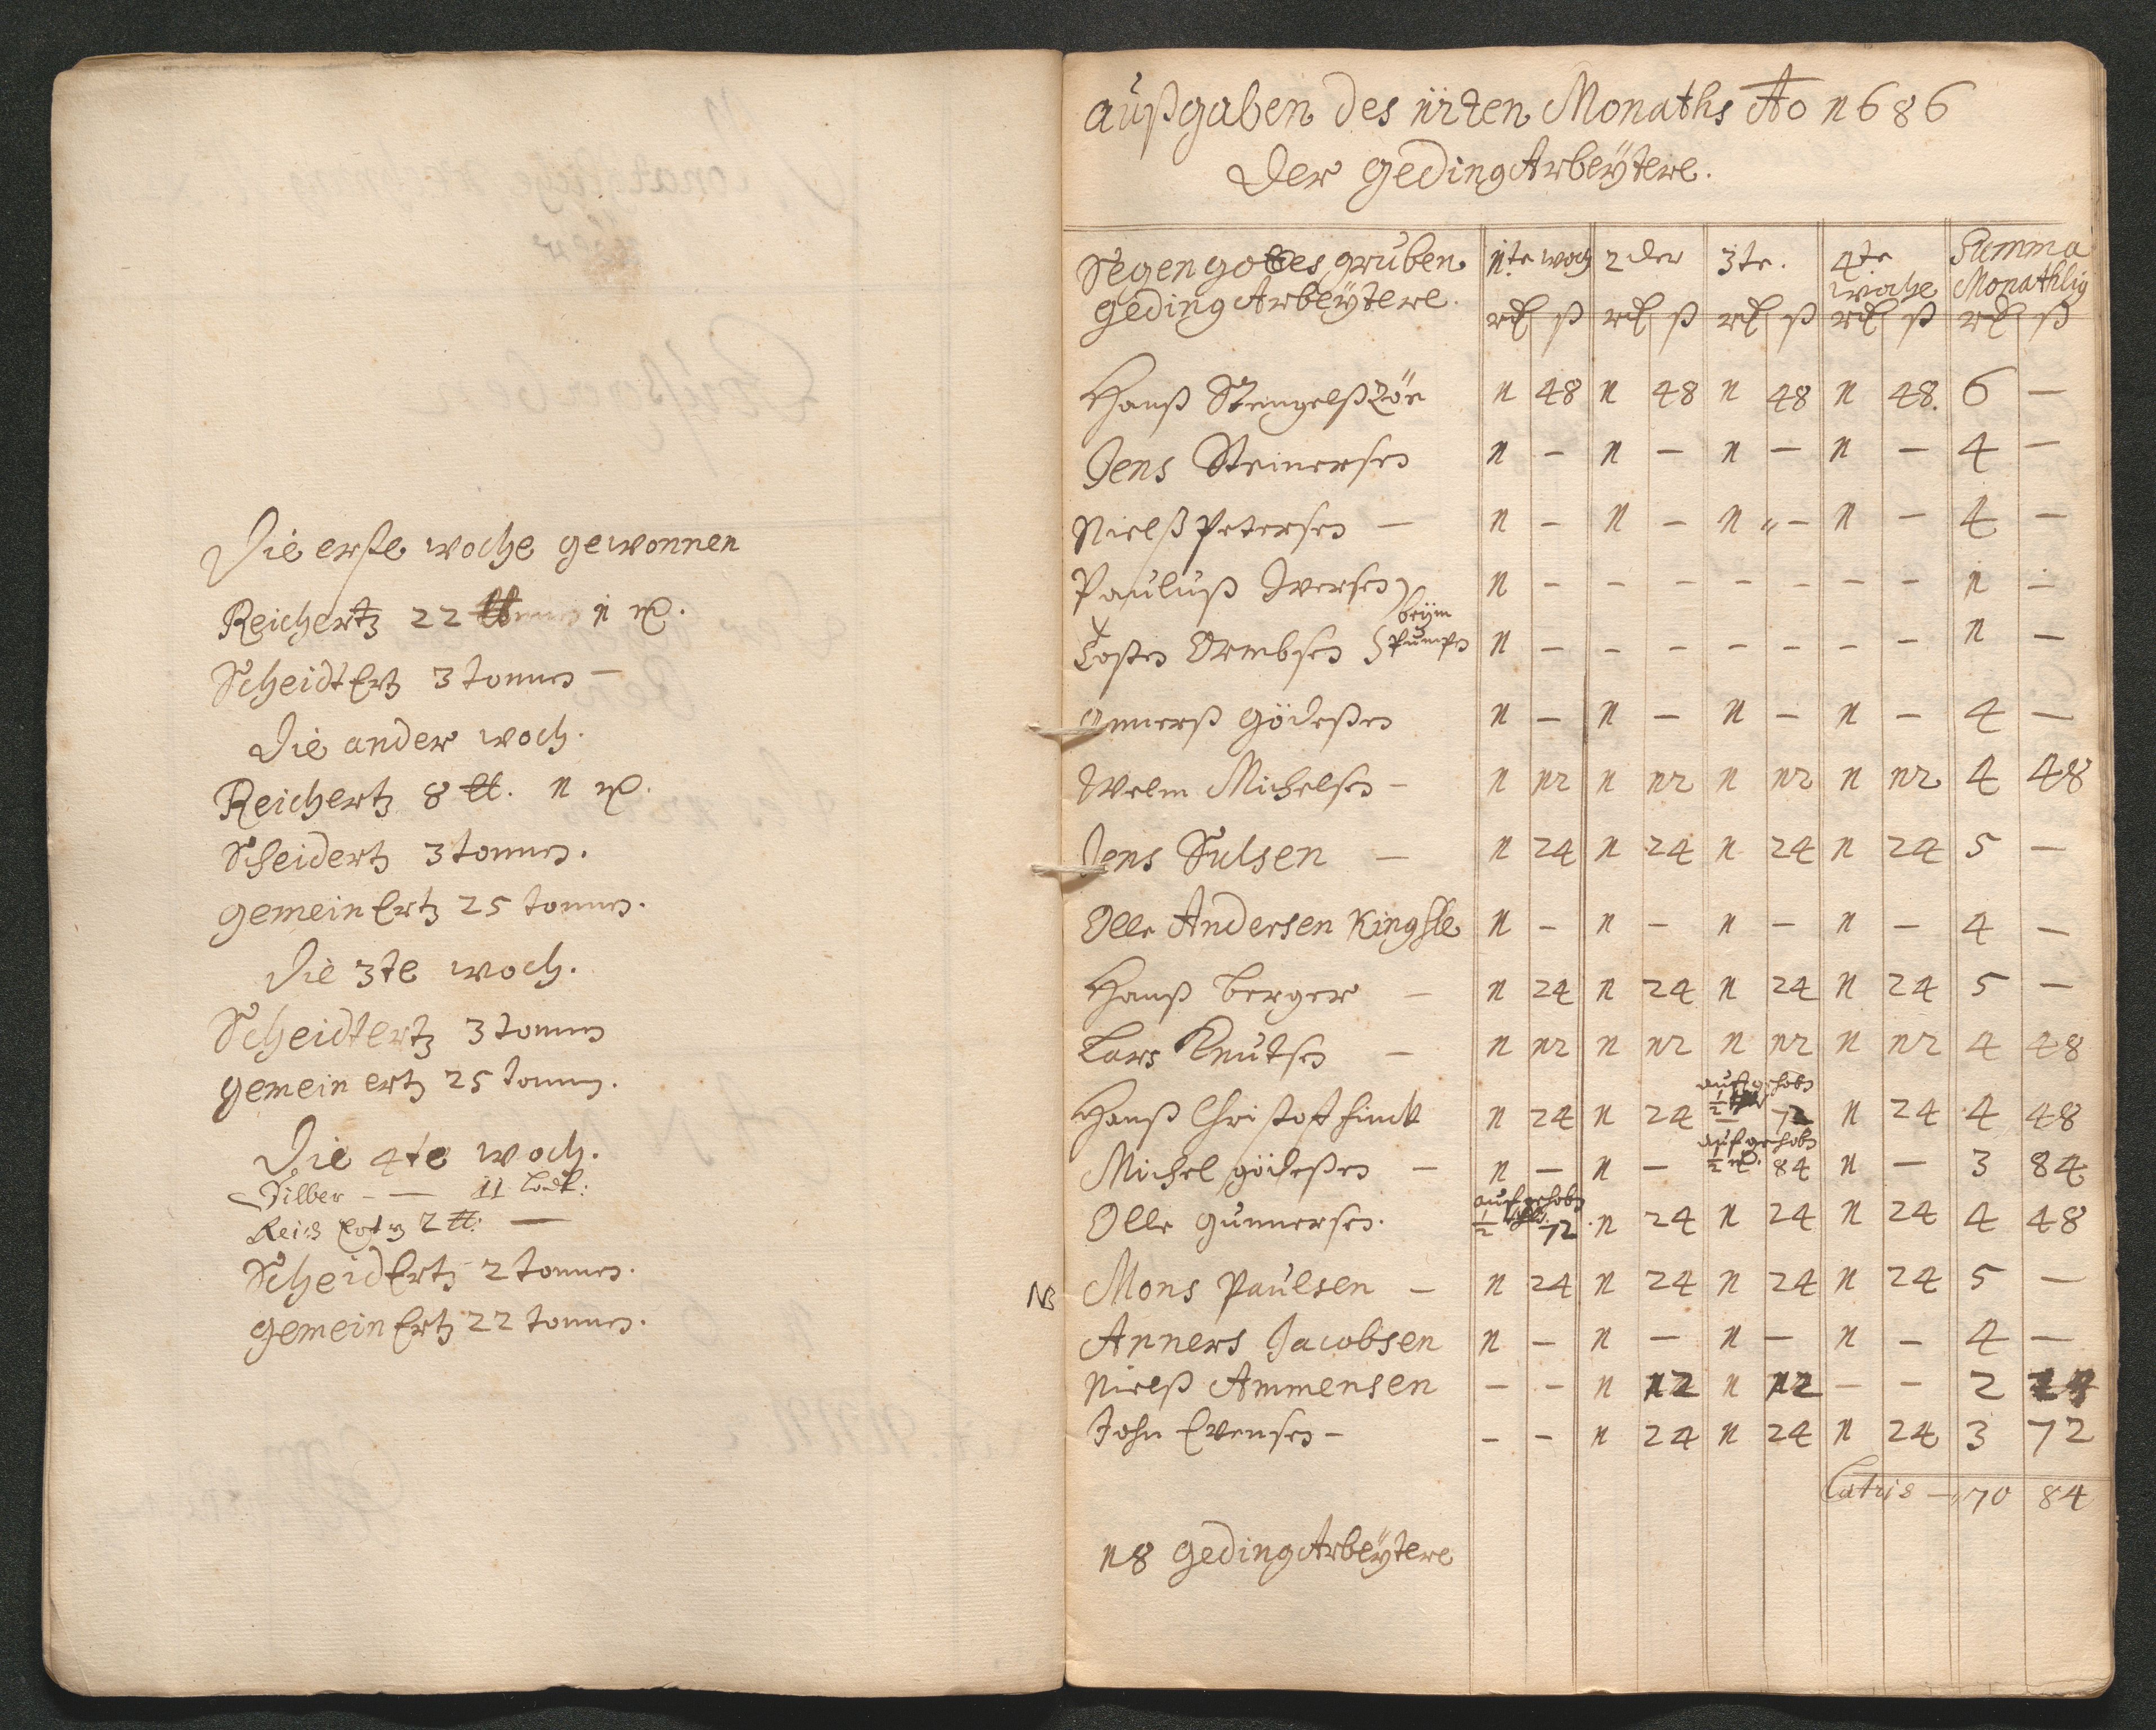 Die erste woche gewonnen
Reichertz 22 ℔ 1 
Scheidt Ertz 3 tonnen —
Die ander woch.
Reichertz 8 ℔. 1 
Scheidertz 3 tonnen.
gemein Ertz 25 tonnen.
Die 3te woch.
Scheidtertz 3 tonnen
gemein ertz 25 tonnen.
Die 4te woch.
Silber - — 11 Lodt:
Reich Ertz 2 ℔: —
Scheid Ertz 2 tonnen.
gemein Ertz 22 tonnen.
außgaben des 12ten Monaths Ao 1686
Der geding Arbeÿtere.
Segen gottes gruben 1te woch 2 der 3te. 4te woche Summa Monathlig
geding Arbeÿtere. rd ß rd ß rd ß rd ß rd ß
Hanß 1 48 1 48 1 48 1 48. 6 —
Jens Steinersen 1 — 1 — 1 — 1 — 4 —
Nielß Petersen — 1 - 1 - 1 - 1 - 4 —
Pauluß Iversen 1 - - - - - - - 1 -
Tosten Ormbsen beÿm Pumpen 1 - - - - - - - 1 —
Gödeßen 1 — 1 — 1 - 1 - 4 —
Michelsen - 1 12 1 12 1 12 1 12 4 48
Jens Sulsen — 1 24 1 24 1 24 1 24 5 —
Olle Andersen 1 - 1 - 1 - 1 - 4 —
Hanß berger — 1 24 1 24 1 24 1 24 5 —
Lars Knutsen — 1 12 1 12 1 12 1 12 4 48
Hanß Christoff finck 1 24 1 24 auffgehoben ½ 72 1 24 4 48
Michel gödeßen — 1 — 1 — auffgehoben ½ 84 1 — 3 84
Olle gunnersen. auffgehoben ½ 72. 1 24 1 24 1 24 4 48
NB Mons Paulsen — 1 24 1 24 1 24 1 24 5 —
Anners Jacobsen 1 — 1 — 1 — 1 — 4 —
Nielß Ammensen — - 1 12 1 12 — - 2 24
John Evensen - - - 1 24 1 24 1 24 3 72
Latus — 70 84
18 geding Arbeÿtere